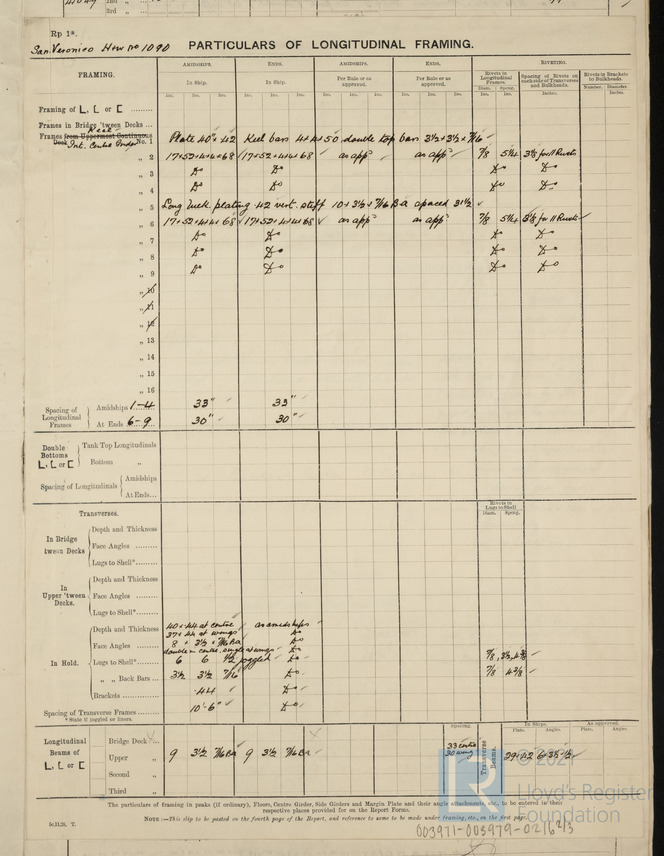 2nd "
3rd "
Rp 1*.
San. Veronico How No 1090 PARTICULARS OF LONGITUDINAL FRAMING.
FRAMING. AMIDSHIPS. ENDS. AMIDSHIPS. ENDS. RIVETING.
In Ship. In Ship. Per Rule or as approved. Per Rule or as approved. Rivets in Longitudinal Frames Spacing of Rivets on each side of Transverses and Bulkheads. Rivets in Brackets to Bulkheads.
Ins. Ins. Ins. Ins. Ins. Ins. Ins. Ins. Ins. Ins. Ins. Ins. Diam. Spcng. Inches. Number. Diameter Inches.
Framing of L, L or C
Frames in Bridge 'tween Decks ...
Keel
Frames from Uppermost Continuous Plate 40" x 42 Keel bars 4 x 4 x 50 double top bars 3½ x 3½ x 7/16
Deck Int. Centre Girder No. 1
" 2 17+52+4+4+68 17+52+4+4+68 as app as app 7/8 5¼ 3⅛ for 11 Rivets
" 3 Do Do Do Do
" 4 Do Do Do Do
" 5 Long bulk plating 42 vert. stiff 10 x 3½ x 7/16 Ba spaced 31½
" 6 17+52+4+4+68 17+52+4+4+68 as app as app 7/8 5¼ 3⅛ for 11 Rivets
" 7 Do Do Do Do
" 8 Do Do Do Do
" 9 Do Do Do Do
" 10
" 11
" 12
" 13
" 14
" 15
" 16
Spacing of Longitudinal Frames Amidships 1-4 33" 33"
At Ends 6-9 30" 30"
Double Bottoms L, L or C Tank Top Longitudinals
Bottom "
Spacing of Longitudinals Amidships
At Ends...
Transverses. Rivets in Lugs to Shell
Diam. Spcng.
In Bridge 'tween Decks Depth and Thickness
Face Angles
Lugs to Shell*
In Upper 'tween Decks. Depth and Thickness
Face Angles
Lugs to Shell*
In Hold. Depth and Thickness 40 x 44 at centre as amidships
37 x 44 at wings Do
Face Angles 8 x 3½ x 7/16 Ba Do
double in centre, single at wings
Lugs to Shell* 6 6 ½ joggled Do 7/8
" " Back Bars ... 3½ 3½ 7/16 Do 7/8 4⅜
Brackets .44 Do
Spacing of Transverse Frames 10'-6" Do
* State if joggled or liners.
Longitudinal Beams of L, L or C Spacing. Transverse Beams. In Ships. As approved.
Plate. Angles. Plate. Angles.
Bridge Deck
Upper " 9 3½ 7/16 Ba 9 3½ 7/16 Ba 33 centre 30 wing 29 x 42 6 x 3½ x ½
Second "
Third "
The particulars of framing in peaks (if ordinary), Floors, Centre Girder, Side Girders and Margin Plate and their angle attachments, etc., to be entered in their
respective places provided for on the Report Forms.
NOTE :—This slip to be pasted on the fourth page of the Report, and reference to same to be made under framing, etc., on the first page.
© 2021
Lloyd's Register
Foundation
003971-003979-0216 2/3